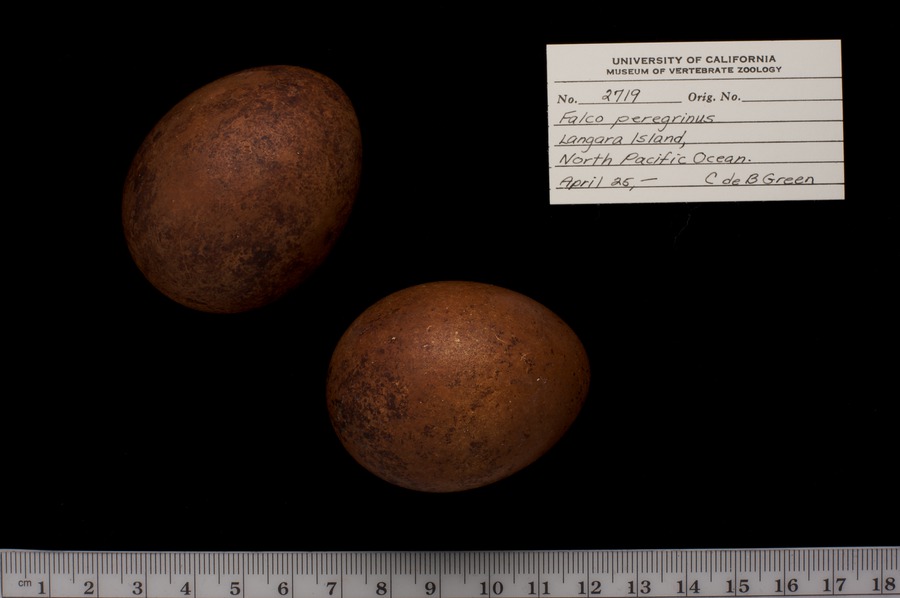 UNIVERSITY OF CALIFORNIA
MUSEUM OF VERTEBRATE ZOOLOGY
No. 2719 Orig. No.
Falco peregrinus
Langara Island,
North Pacific Ocean.
April 25,— C de B Green
cm 1 2 3 4 5 6 7 8 9 10 11 12 13 14 15 16 17 18